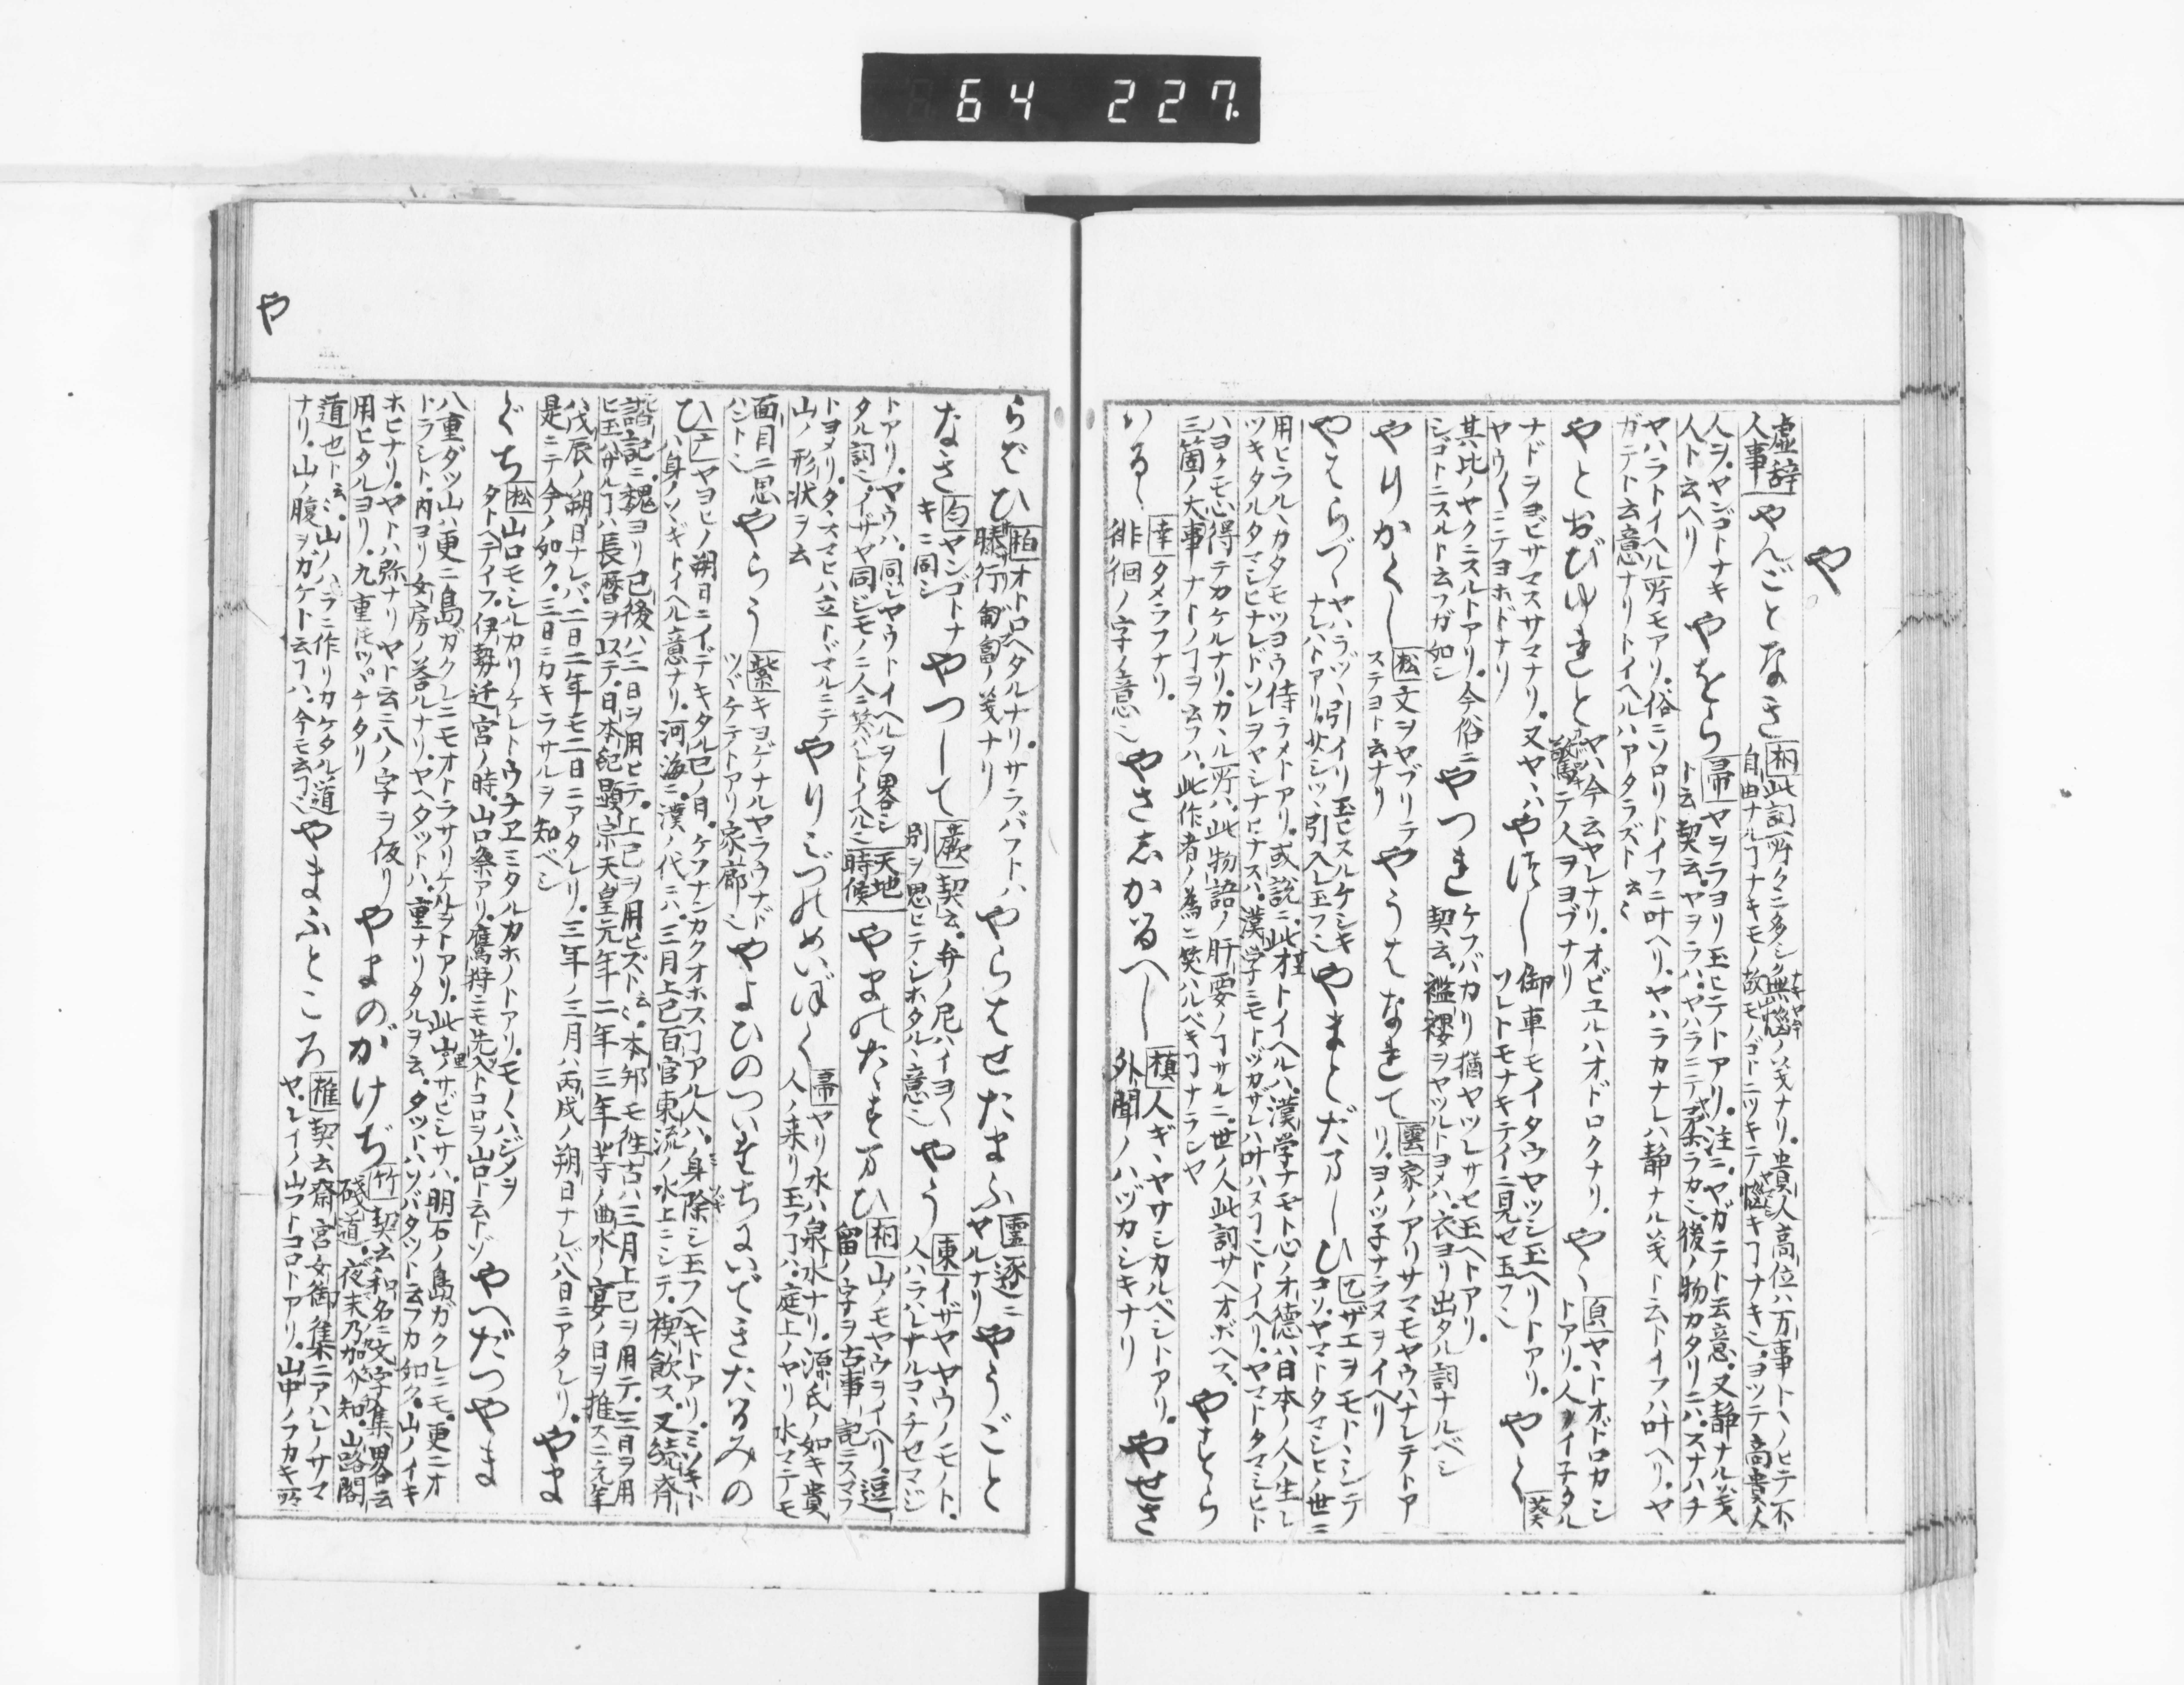 64 227
や
虚辞
人事
やんごとなき 桐 此詞所々ニ多シ無惱ノ義ナリ貴人高位ハ万事トヽノヒテ不
自由ナルヿナキモノ故モノゴトニツキテ惱キヿナキ也ヨツテ高貴ノ人
人ヲヤンゴトナキ
人ト云ヘリ
やをら 帚 ヤヲラヨリ玉ヒテトアリ注ニヤガテト云意又静ナル義
ト云契云ヤヲラハヤハラニテ柔ラカ也後ノ物カタリニハスナハチ
ヤハラトイヘル所モアリ俗ニソロリトイフニ叶ヘリヤハラカナレハ静ナル義ト云トイフハ叶ヘリヤ
ガテト云意ナリトイヘルハアタラズト云々
やとおびゆれと ヤハ今云ヤレナリオビユルハオドロクナリ
驚テ人ヲヨブナリ
やゝ 員 ヤヽトオドロカシ
トアリ人ヲイ子タル
ナドヲヨビサマスサマナリ又ヤヽハ
ヤウ〱ニテヨホドナリ
やつし 御車モイタウヤツシ玉ヘリトアリ
ソレトモナキテイニ見セ玉フ也
やく 葵
其比ノヤクニスルトアリ今俗ニ
シゴトニスルト云フガ如シ
やつれ ケフバカリ猶ヤツレサセ玉ヘトアリ
契云襤褸ヲヤツルトヨメハ衣ヨリ出タル詞ナルベシ
やりかくし 松 文ヲヤブリテ
ステヨト云ナリ
やうはなれて 雲 家ノアリサマモヤウハナレテトア
リヨノツ子ナラヌヲイヘリ
やはらづゝ ヤハラヅヽ引イリ玉ヒヌルケシキ
ナレハトアリサシツヽ引入レ玉フ也
やまとだましひ 乙 ザエヲモトヽシテ
コソヤマトタマシヒノ世ニ
用ヒラルヽカタモツヨウ侍ラメトアリ或説ニ此才トイヘルハ漢学ナモト心ノ才徳ハ日本ノ人ノ生レ
ツキタルタマシヒナレドソレヲヤシナヒナスハ漢学ニモトヅカザレハ叶ハヌヿ也トイヘリヤマトタマシヒト
ハヨクモ心得テカケルナリカヽル所ハ此物語ノ肝要ノヿサルニ世ノ人此詞サヘオボヘス
三箇ノ大事ナトノヿヲ云フハ此作者ノ為ニ笑ハルベキヿナランヤ
やすら
いる 幸 タメラフナリ
徘徊ノ字ノ意也
やさしかるへし 槙 人ギヽヤサシカルベシトアリ
外聞ノハヅカシキナリ
やせさ
らぼひ 柏 オトロヘタルナリサラバフトハ
膝行匍匐ノ義ナリ
やらはせたまふ 霊 逐ニ
ヤルナリ
やうごと
なき 匂 ヤンゴトナ
キニ同シ
やつして 蕨 契云弁ノ尼ハイヨ〱
別ヲ思ヒテシホタルヽ意也
やう 東 イザヤヤウノモノト
人ハラハレナルコヽチセマジ
トアリヤウハ同シヤウトイヘルヲ畧シ
タル詞也イザヤ同ジモノニ人ニ笑ハレントイヘル也
天地
時候
やまのたゝすまひ 桐 山ノモヤウヲイヘリ逗
留ノ字ヲ古事記ニスマフ
トヨメリタヽスマヒハ立トヾマルニテ
山ノ形状ヲ云
やりみづのめいぼく 帚 ヤリ水ハ泉水ナリ源氏ノ如キ貴
人ノ来リ玉フヿハ庭上ノヤリ水マテモ
面目ニ思
ハント也
やらう 紫 キヨゲナルヤラウナド
ツヾケテトアリ家廊也
やよひのついたちにいてきたるみの
ひ 亡 ヤヨヒノ朔日ニイデキタル巳ノ日ケフナンカクオホスヿアル人ハ身除シ玉フヘキトアリミソキト
ハ身ノソギトイヘル意ナリ河海ニ漢ノ代ニハ三月上巳百官東流ノ水上ニシテ禊飲ス又続斉
諧記ニ魏ヨリ已後ハ三日ヲ用ヒテ上巳ヲ用ヒズト云本邦モ往古ハ三月上巳ヲ用テ三日ヲ用
ヒ玉ハサルヿハ長暦ヲ以テ日本紀顕宗天皇元年二年三年等ノ曲水ノ宴ノ日ヲ推スニ元年
ハ戊辰ノ朔日ナレバ二日二年モ二日ニアタレリ三年ノ三月ハ丙戌ノ朔日ナレバ八日ニアタレリ
是ニテ今ノ如ク三日ニカキラサルヲ知ベシ
やま
ぐち 松 山口モシルカリケレトウチヱミタルカホノトアリモノヽハジメヲ
タトヘテイフ伊勢迁宮ノ時山口祭アリ鷹狩ニモ先入トコロヲ山口ト云トゾ
やへだつやま
八重ダツ山ハ更ニ島ガクレニモオトラサリケルヲトアリ此山里ノサビシサハ明石ノ島ガクレニモ更ニオ
トラシト内ヨリノ女房ノ答ルナリヤヘタツトハ重ナリタルヲ云タツトハソバタツト云フカ如ク山ノイキ
ホヒナリヤトハ弥ナリヤト云ニ八ノ字ヲ仮リ
用ヒタルヨリ九重トモツヾケタリ
やまのがけぢ 竹 契云和名ニ文字集畧云
磴道夜末乃加介知山路閣
道也ト云山ノハラニ作リカケタル道
ナリ山ノ腹ヲガケト云ヿハ今モ云フ也
やまふところ 椎 契云齋宮女御集ニアハレノサマ
ヤレイノ山フトコロトアリ山中ノフカキ所
や